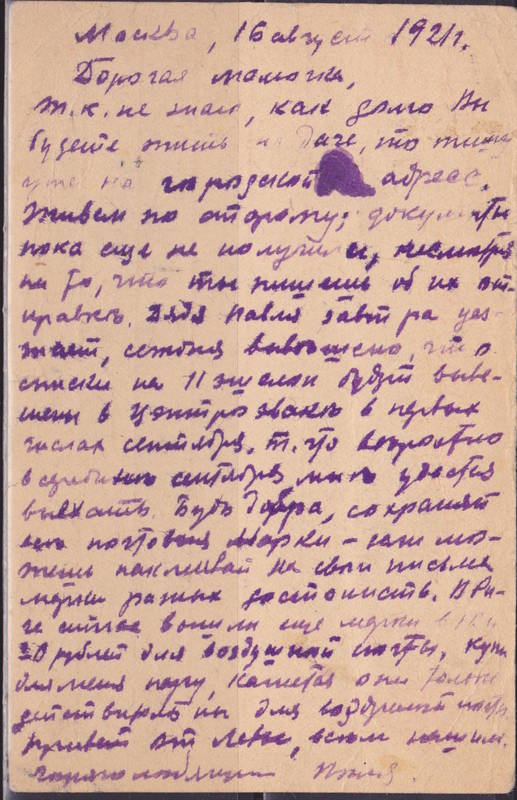 Москва, 16 август 1921г.
Дорогая мамочка,
т.к. не знаю, как долго Вы
будете жить на даче, то пишу
уже на городской адрес.
Живем по старому; документы
пока еще не получили, несмотря
на то, что ты пишешь об их от-
правке. Дядя Павля завтра уез-
жает, сегодня вывешено, что
списки на 11 эшелон будут выве-
шены в Центроэваке в первых
числах сентября, т.что вероятно
в середине сентября мне удастся
выехать. Будь добра, сохраняй
почтовые марки – если мо-
жешь наклеивай на свои письма
марки разных достоинств. В Ри-
ге сейчас вошли еще марки в
20 рублей для воздушной почты, купи
для меня пару, кажется они только
действительны для воздушной почты.
Привет от Левы, всем нашим.
Горячо любящий